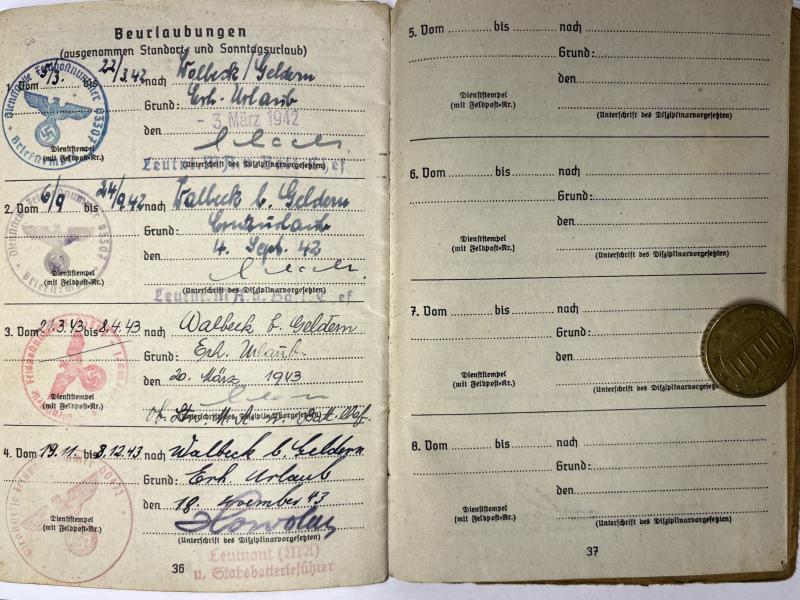 Beurlaubungen
(ausgenommen Standort- und Sonntagsurlaub)
1. Vom 3/3. bis 22/3.42 nach Walbeck/Geldern
Grund: Erh. Urlaub
den - 3 März 1942
Dienststempel
(mit Feldpost-Nr.)
(Unterschrift des Disziplinarvorgesetzten)
Dienststelle Feldpostnummer 03307
Briefstempel
Leutnant M.A. u. Batt. Chef
2. Vom 6/9 bis 24/9.42 nach Walbeck b. Geldern
Grund: Ernteurlaub
den 4. Sept. 42
Dienststempel
(mit Feldpost-Nr.)
(Unterschrift des Disziplinarvorgesetzten)
Dienststelle Feldpostnummer 03307
Briefstempel
Leutnt. M.A. u. Batt. Chef
3. Vom 21.3.43 bis 8.4.43 nach Walbeck b. Geldern
Grund: Erh. Urlaub.
den 20. März 1943
Dienststempel
(mit Feldpost-Nr.)
(Unterschrift des Disziplinarvorgesetzten)
4. Vom 19.11. bis 8.12.43 nach Walbeck b. Geldern
Grund: Erh. Urlaub
den 18. November 43
Dienststempel
(mit Feldpost-Nr.)
(Unterschrift des Disziplinarvorgesetzten)
Leutnant (MA)
u. Stabsbatterieführer
36
5. Vom bis nach
Grund:
den
Dienststempel
(mit Feldpost-Nr.)
(Unterschrift des Disziplinarvorgesetzten)
6. Vom bis nach
Grund:
den
Dienststempel
(mit Feldpost-Nr.)
(Unterschrift des Disziplinarvorgesetzten)
7. Vom bis nach
Grund:
den
Dienststempel
(mit Feldpost-Nr.)
(Unterschrift des Disziplinarvorgesetzten)
8. Vom bis nach
Grund:
den
Dienststempel
(mit Feldpost-Nr.)
(Unterschrift des Disziplinarvorgesetzten)
37